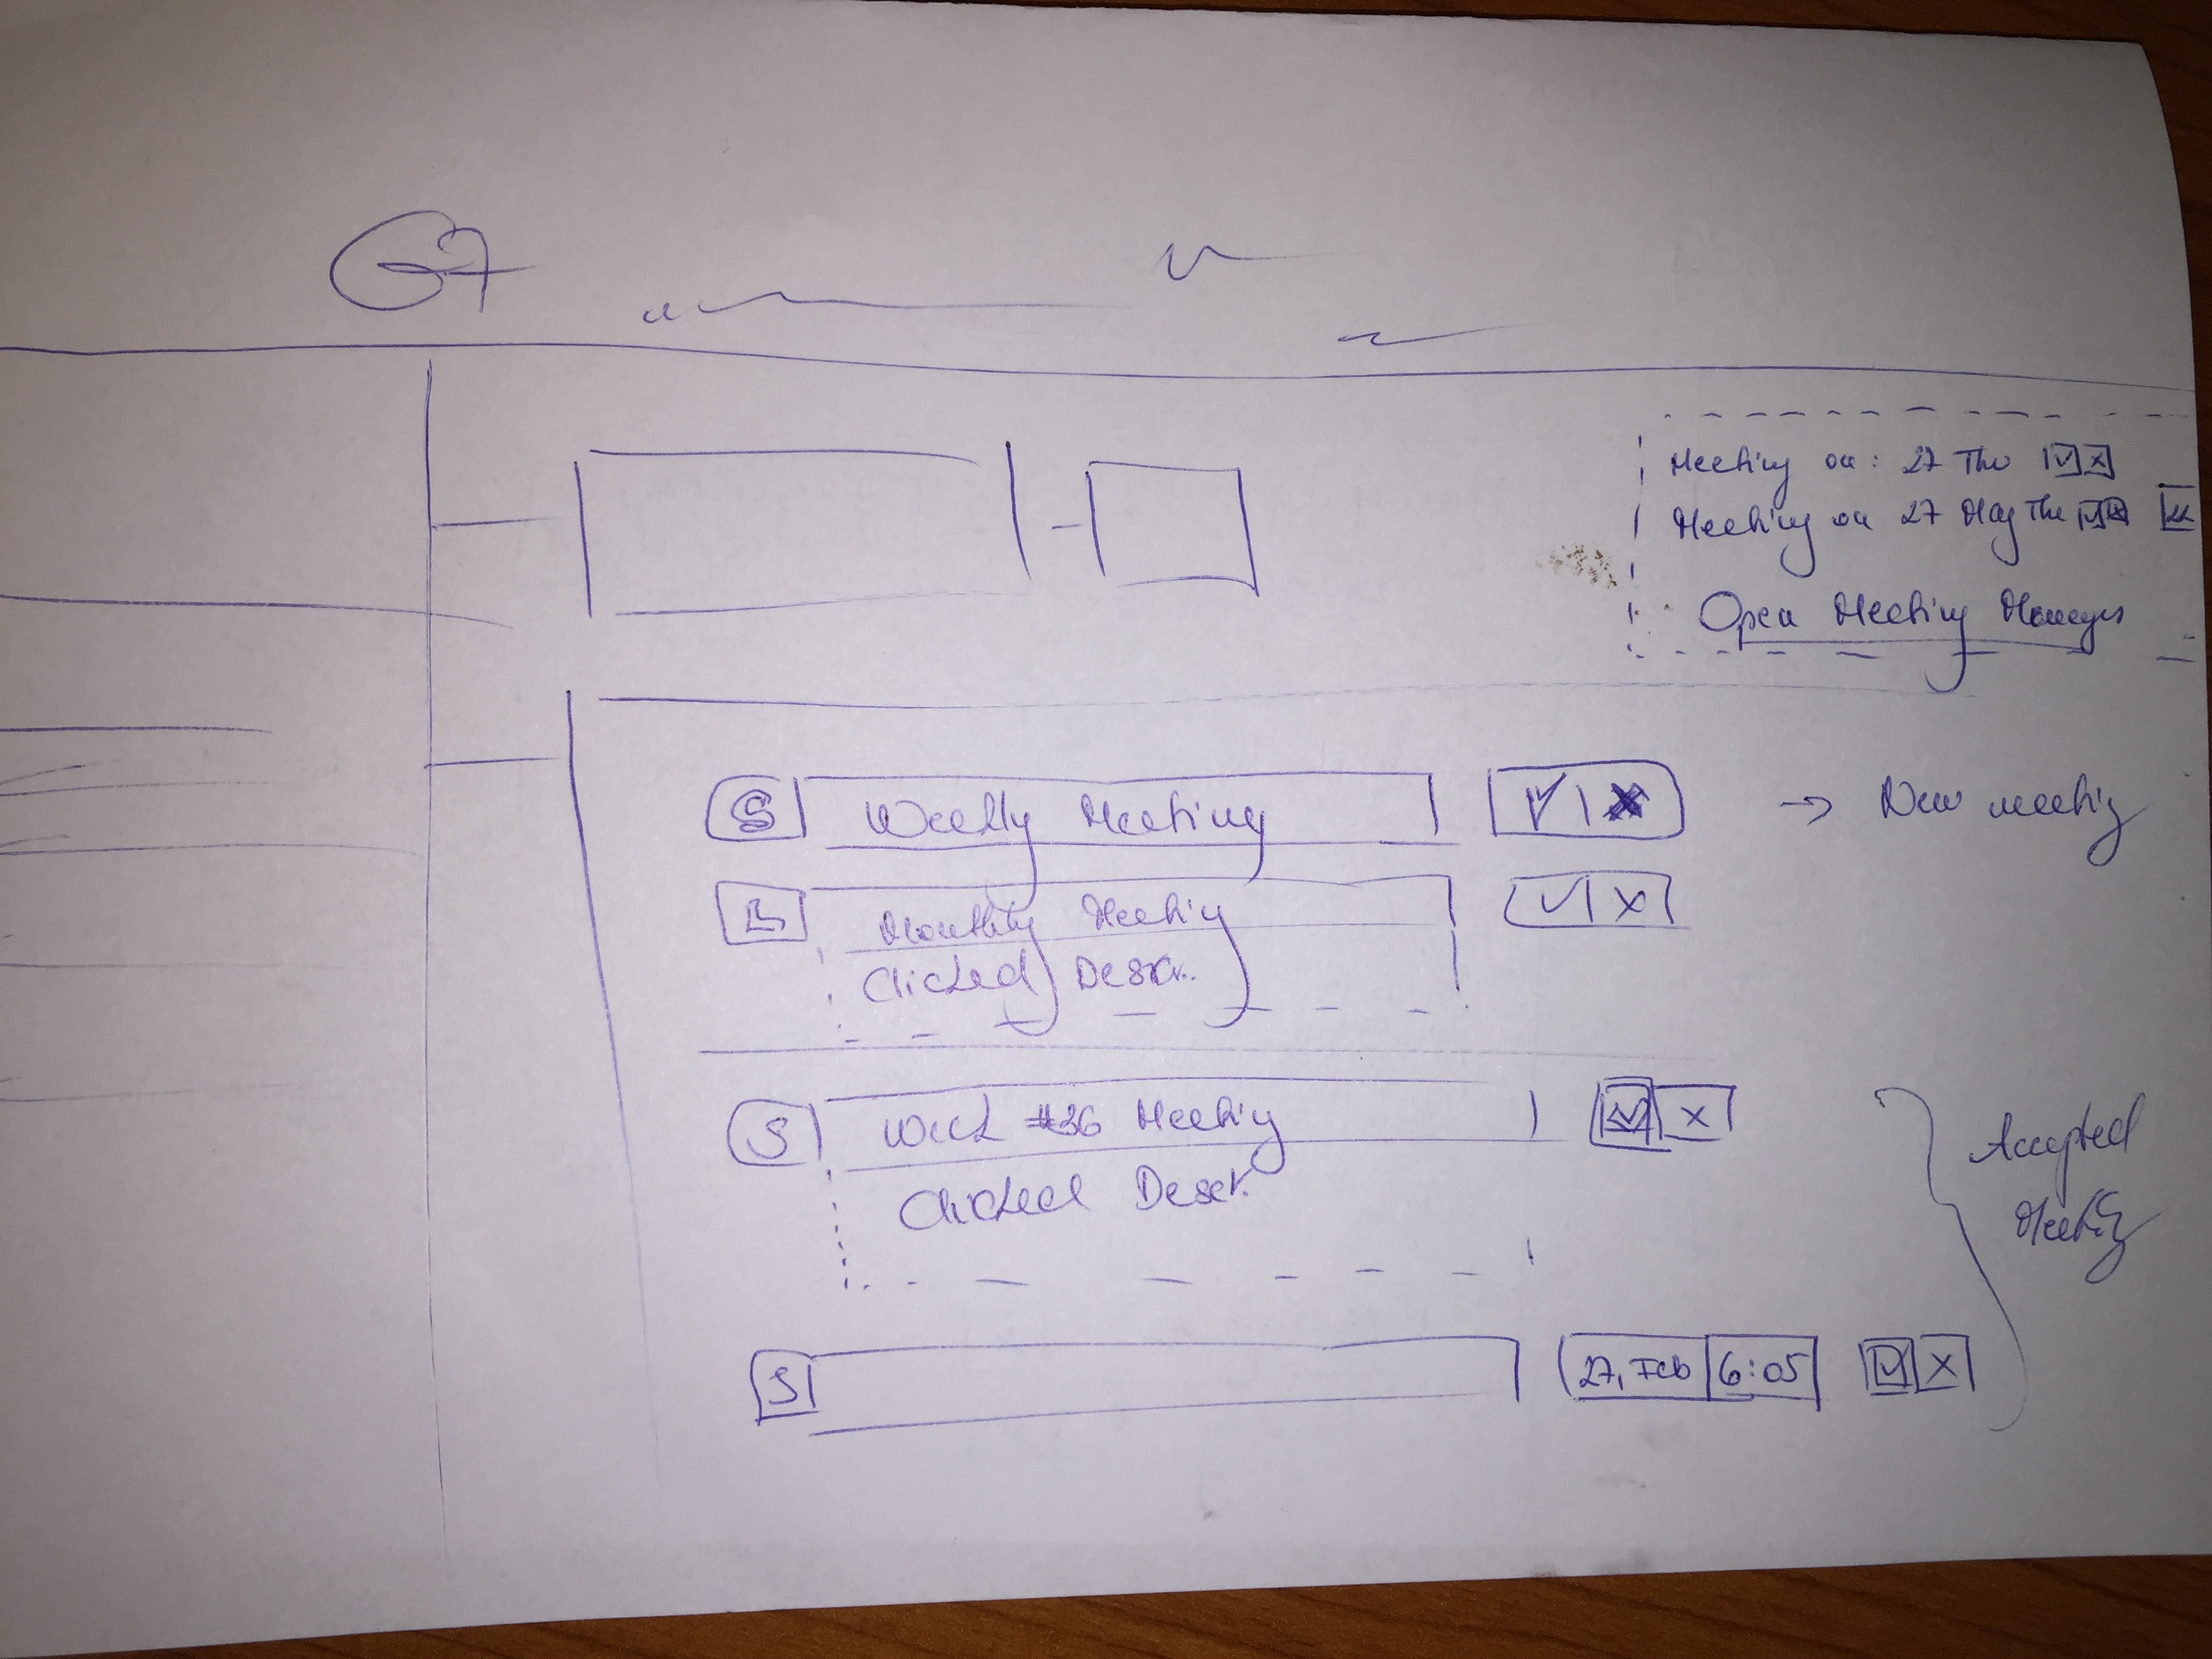 G7
Meeting on: 27 Thu
Meeting on 27 May Thu
Open Meeting Manager
S Weekly Meeting
→ New meeting
B Monthly Meeting
Clicked Descr..
S Week #36 Meeting
Clicked Descr.
Accepted
Meeting
S 27, Feb 6:05